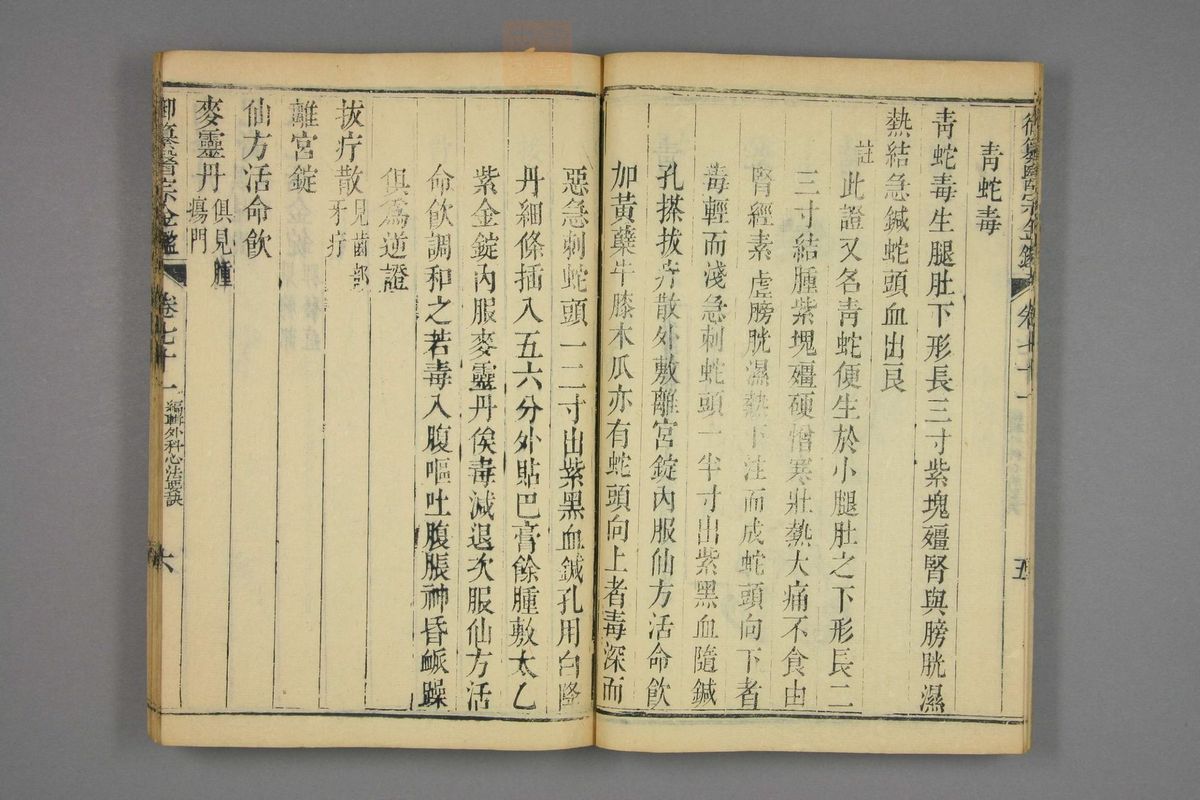 御纂醫宗金鑑 卷七十一 五
青蛇毒
青蛇毒生腿肚下形長三寸紫塊殭腎與膀胱濕
熱結急鍼蛇頭血出良
註此證又名青蛇便生於小腿肚之下形長二
三寸結腫紫塊殭硬憎寒壯熱大痛不食由
腎經素虛膀胱濕熱下注而成蛇頭向下者
毒輕而淺急刺蛇頭一半寸出紫黑血隨鍼
孔搽拔疔散外敷離宮錠內服仙方活命飲
加黃蘗牛膝木瓜亦有蛇頭向上者毒深而
惡急刺蛇頭一二寸出紫黑血鍼孔用白降
丹細條插入五六分外貼巴膏餘腫敷太乙
紫金錠內服麥靈丹俟毒減退次服仙方活
命飲調和之若毒入腹嘔吐腹脹神昏衇躁
俱為逆證
拔疔散見齒部牙疔
離宮錠
仙方活命飲
麥靈丹俱見腫瘍門
御纂醫宗金鑑 卷七十一 編輯外科心法要訣 六